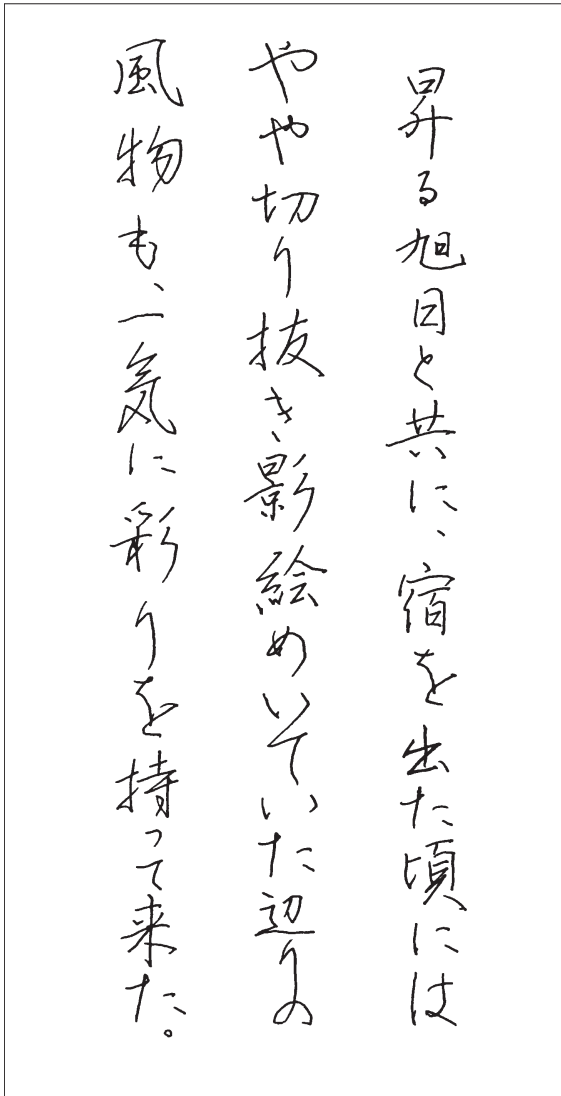 昇る旭日と共に、宿を出た頃には
やや切り抜き影絵めいていた辺りの
風物も、一気に彩りを持って来た。